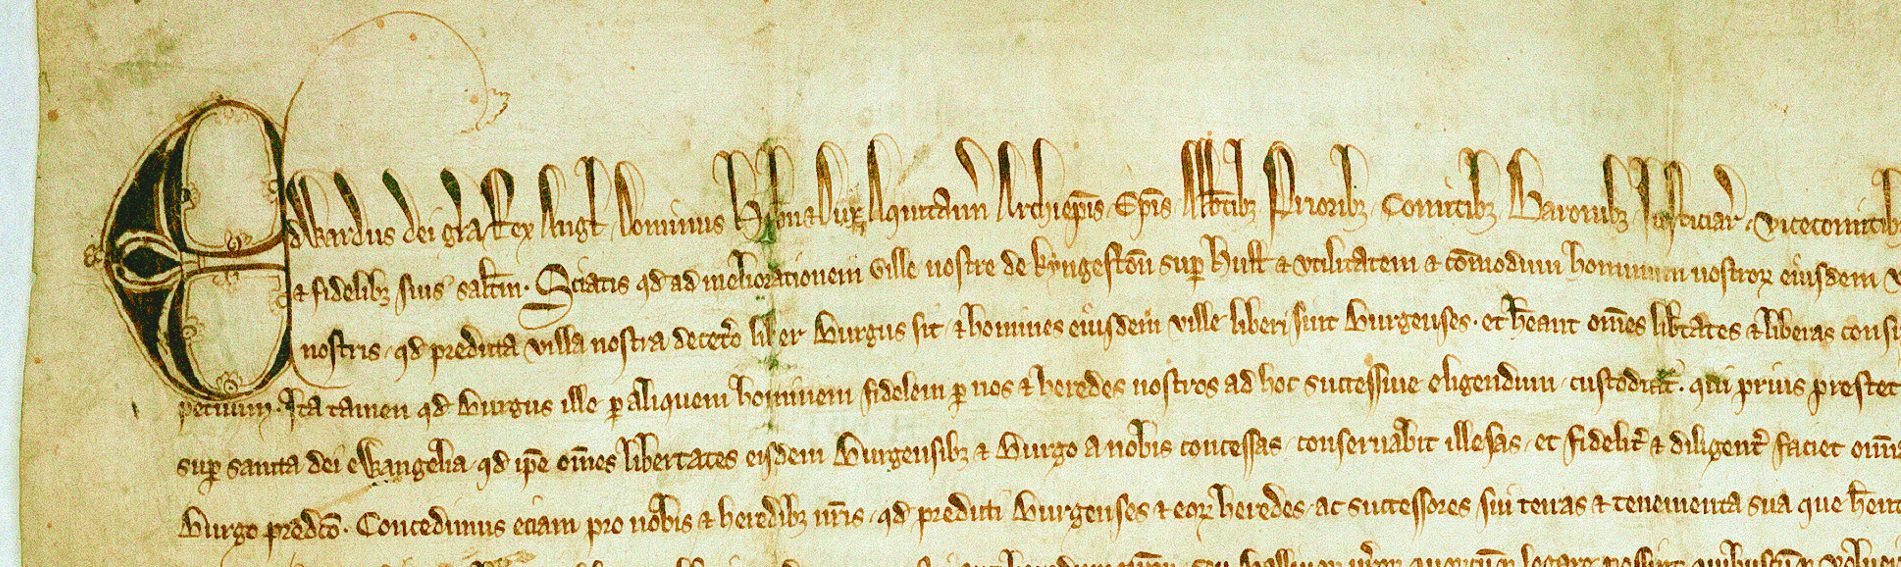 Edwardus dei gr̄a Rex Angl̄ Dominus Hib̄n & Dux Aquitann̄ Archiep̄is Ep̄is Abb̄tibꝫ Prioribꝫ Comitibꝫ Baronibꝫ Justiciar̄ vicecomitibꝫ
& fidelibꝫ suis sal̄tm. Sciatis qd ad meliorationem ville nostre de Kyngeston̄ sup̄ Hull & vtilitatem & com̄odum hominum nostroꝝ eiusdem v
nostris qd predicta villa nostra decet̄o liber Burgus sit & homines eiusdem ville liberi sint Burgenses. et h̄eant om̄es lib̄tates & liberas consu
petuum. Ita tamen qd Burgus ille ꝑ aliquem hominem fidelem ꝑ nos & heredes nostros ad hoc successiue eligendum custodiat̄. qui prius prestet
sup̄ sancta dei ewangelia qd ip̄e om̄es libertates eisdem Burgensibꝫ & Burgo a nobis concessas conseruabit illesas et fidelit̄ & diligent̄ faciet om̄ia
Burgo pred̄co. Concedimus eciam pro nobis & heredibꝫ nr̄is qd predicti Burgenses & eoꝝ heredes ac successores sui terras & tenementa sua que h̄ent